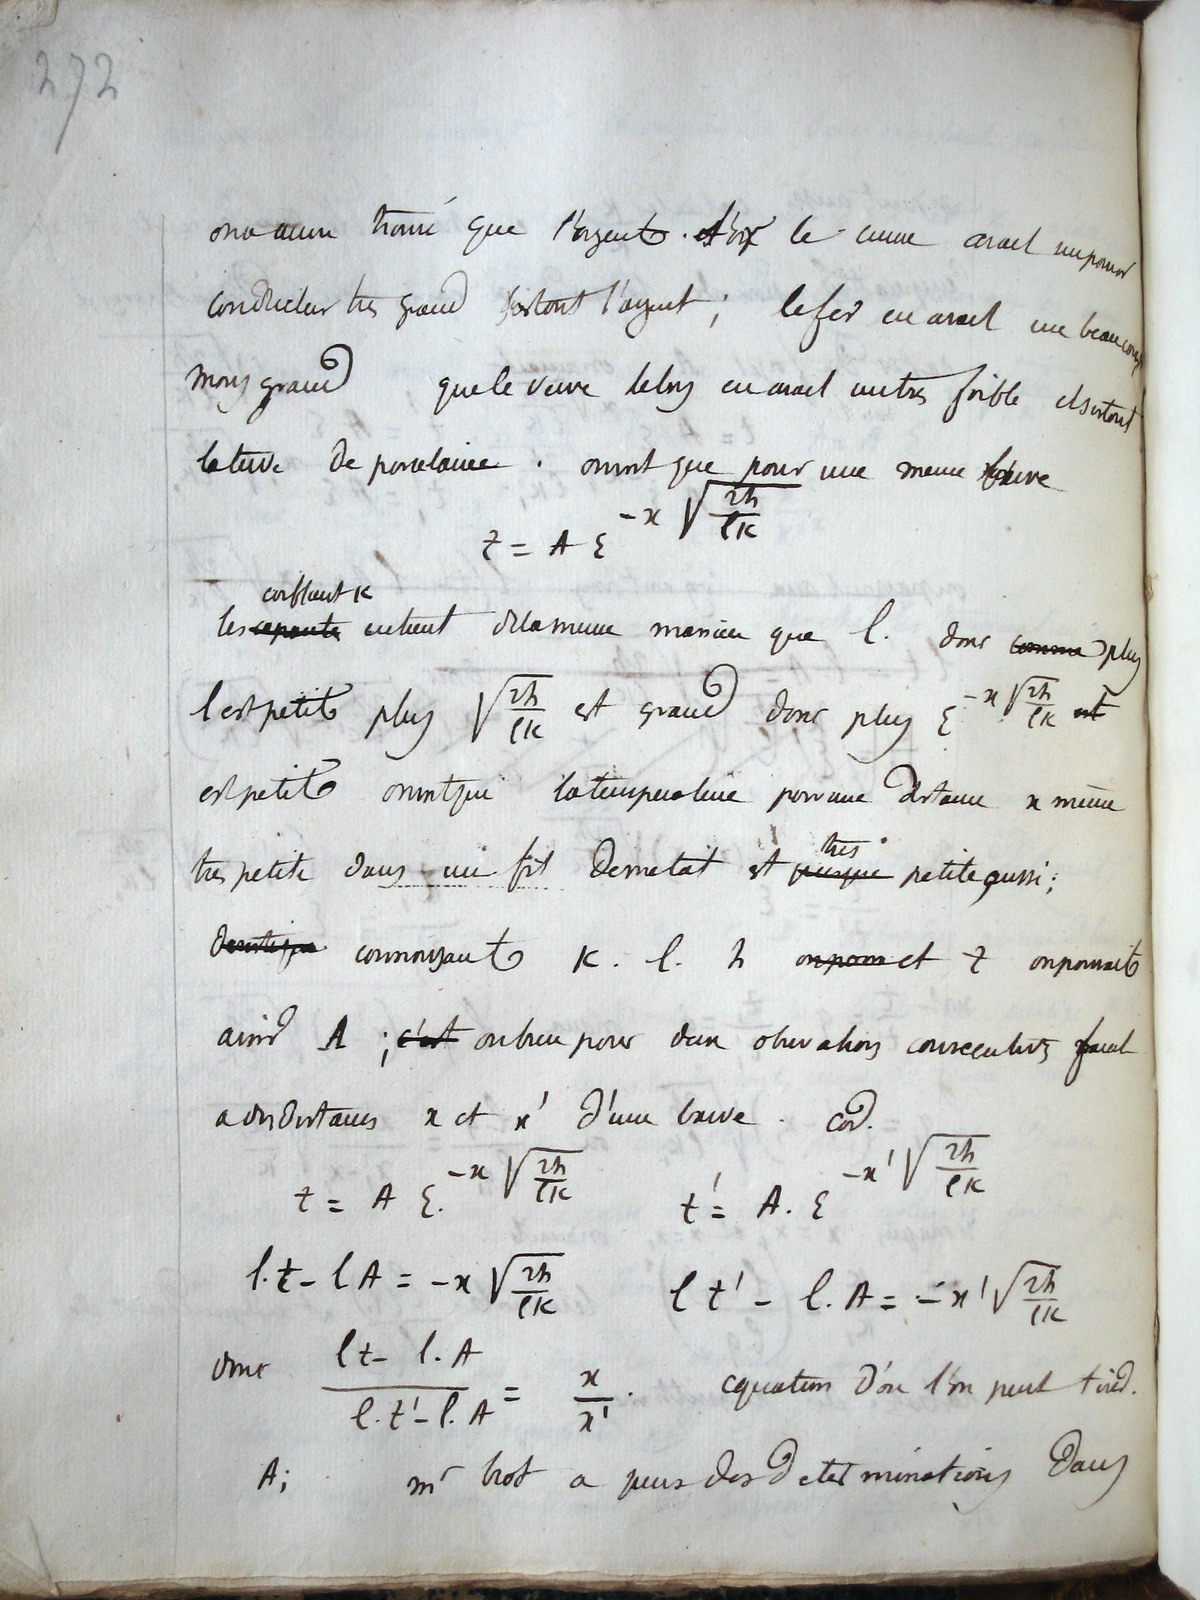 272
trouvé que l'argent. le cuivre avait un pouvoir
conducteur très grand surtout l'argent; le fer en avait un beaucoup
moins grand que le verre le bois en avait un très foible et surtout
la terre de porcelaine. on voit que pour une meme barre
t = A ε^{-x √(2h/lK)}
coefficient K
les entrent de la meme maniere que l. donc comme plus
l est petit plus √(2h/lK) est grand donc plus ε^{-x √(2h/lK)} est
est petit on voit que la temperature pour une distance x même
tres
tres petite dans un fil de metal est presque petite aussi;
connoissant K. l. h on pour et t on pourrait
avoir A; c'est ou bien pour deux observations consecutives
a des distances x et x' d'une barre.
t = A ε.^{-x √(2h/lK)} t' = A. ε^{-x' √(2h/lK)}
l.t - lA = -x √(2h/lK) l t' - l.A = -x' √(2h/lK)
donc (lt - l.A)/(l.t' - l.A) = x/x'. equation d'ou l'on peut tirer.
A; mr biot a determinations dans